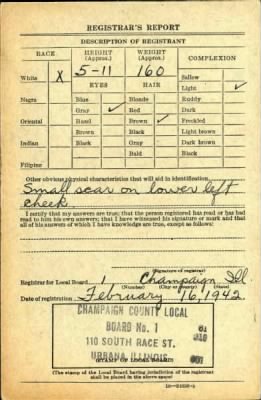 REGISTRAR'S REPORT
DESCRIPTION OF REGISTRANT
RACE HEIGHT (Approx.) WEIGHT (Approx.) COMPLEXION
White X 5-11 160 Sallow
EYES HAIR Light ✓
Negro Blue Blonde Ruddy
Gray ✓ Red Dark
Oriental Hazel Brown ✓ Freckled
Brown Black Light brown
Indian Black Gray Dark brown
Bald Black
Filipino
Other obvious physical characteristics that will aid in identification
Small scar on lower left
cheek.
I certify that my answers are true; that the person registered has read or has had
read to him his own answers; that I have witnessed his signature or mark and that
all of his answers of which I have knowledge are true, except as follows:
(Signature of registrar)
Registrar for Local Board 1 Champaign Ill
(Number) (City or county) (State)
Date of registration February 16, 1942
CHAMPAIGN COUNTY LOCAL
BOARD No. 1
110 SOUTH RACE ST.
URBANA, ILLINOIS
(STAMP OF LOCAL BOARD)
(The stamp of the Local Board having jurisdiction of the registrant
shall be placed in the above space)